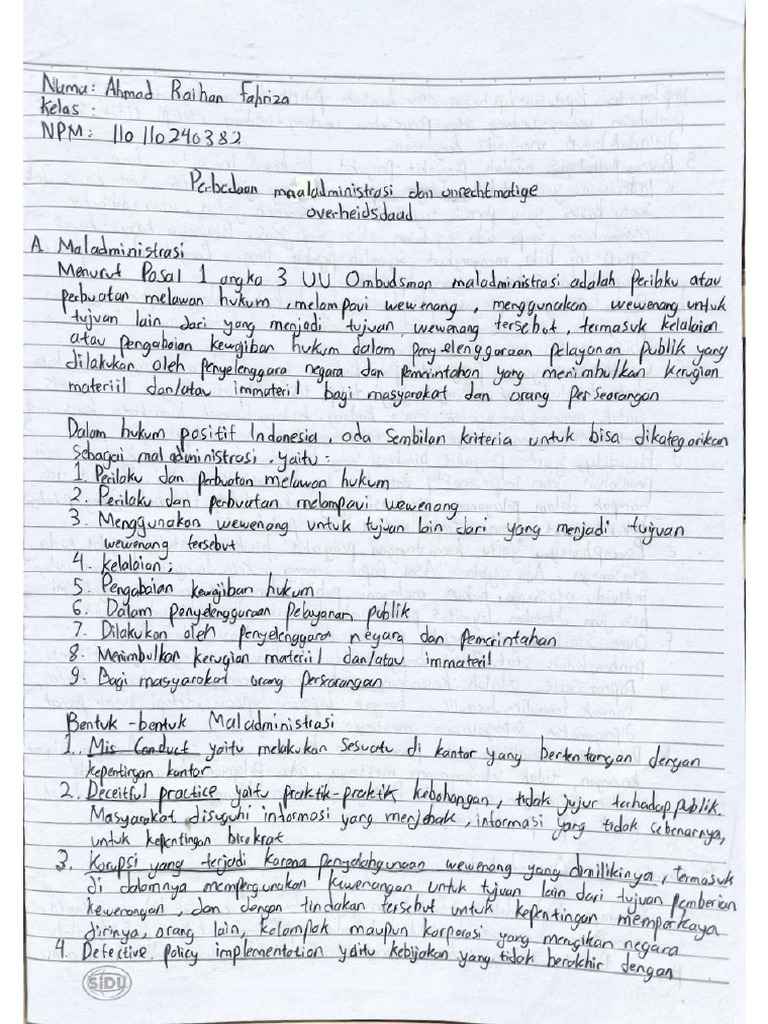 Nama: Ahmad Raihan Fahriza
Kelas :
NPM: 110 110240382
Perbedaan maaladministrasi dan onrechtmatige
overheidsdaad
A. Maladministrasi
Menurut Pasal 1 angka 3 UU Ombudsman maladministrasi adalah perilaku atau
perbuatan melawan hukum, melampaui wewenang, menggunakan wewenang untuk
tujuan lain dari yang menjadi tujuan wewenang tersebut, termasuk kelalaian
atau pengabaian kewajiban hukum dalam penyelenggaraan pelayanan publik yang
dilakukan oleh penyelenggara negara dan pemerintahan yang menimbulkan kerugian
materiil dan/atau immateriil bagi masyarakat dan orang perseorangan
Dalam hukum positif Indonesia, ada sembilan kriteria untuk bisa dikategorikan
sebagai maladministrasi, yaitu :
1. Perilaku dan perbuatan melawan hukum
2. Perilaku dan perbuatan melampaui wewenang
3. Menggunakan wewenang untuk tujuan lain dari yang menjadi tujuan
wewenang tersebut
4. Kelalaian;
5. Pengabaian kewajiban hukum
6. Dalam penyelenggaraan pelayanan publik
7. Dilakukan oleh penyelenggara negara dan pemerintahan
8. Menimbulkan kerugian materiil dan/atau immateriil
9. Bagi masyarakat orang perseorangan
Bentuk-bentuk Maladministrasi
1. Mis Conduct yaitu melakukan sesuatu di kantor yang bertentangan dengan
kepentingan kantor
2. Deceitful practice yaitu praktik-praktik kebohongan, tidak jujur terhadap publik.
Masyarakat disuguhi informasi yang menjebak, informasi yang tidak sebenarnya,
untuk kepentingan birokrat
3. Korupsi yang terjadi karena penyalahgunaan wewenang yang dimilikinya, termasuk
di dalamnya mempergunakan kewenangan untuk tujuan lain dari tujuan pemberian
kewenangan, dan dengan tindakan tersebut untuk kepentingan memperkaya
dirinya, orang lain, kelompok maupun korporasi yang merugikan negara
4. Defective policy implementation yaitu kebijakan yang tidak berakhir dengan
SIDU